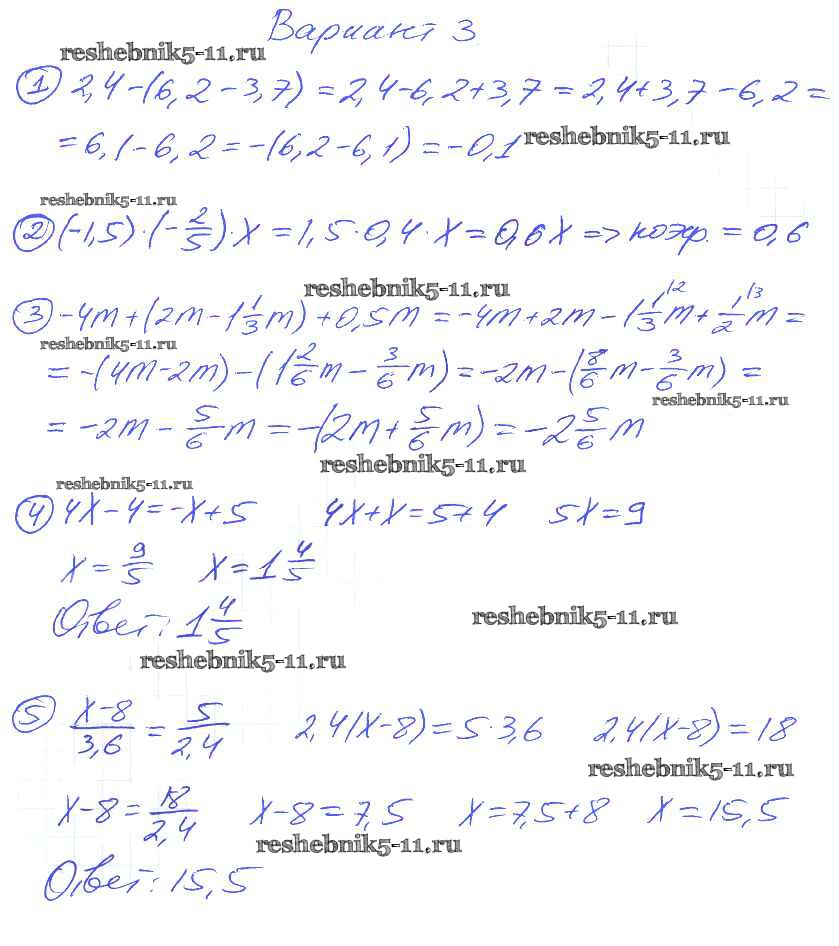 Вариант 3
reshebnik5-11.ru
① 2,4-(6,2-3,7)=2,4-6,2+3,7=2,4+3,7-6,2=
=6,1-6,2=-(6,2-6,1)=-0,1
reshebnik5-11.ru
reshebnik5-11.ru
② (-1,5)·(-2/5)·x=1,5·0,4·x=0,6x=>коэф.=0,6
reshebnik5-11.ru
③ -4m+(2m-1 1/3m)+0,5m=-4m+2m-1 1/3\2m+1/2\3m=
reshebnik5-11.ru
=-(4m-2m)-(1 2/6m-3/6m)=-2m-(8/6m-3/6m)=
reshebnik5-11.ru
=-2m-5/6m=-(2m+5/6m)=-2 5/6m
reshebnik5-11.ru
reshebnik5-11.ru
④ 4x-4=-x+5 4x+x=5+4 5x=9
x=9/5 x=1 4/5
Ответ: 1 4/5
reshebnik5-11.ru
reshebnik5-11.ru
⑤ x-8/3,6=5/2,4 2,4(x-8)=5·3,6 2,4(x-8)=18
reshebnik5-11.ru
x-8=18/2,4 x-8=7,5 x=7,5+8 x=15,5
reshebnik5-11.ru
Ответ: 15,5